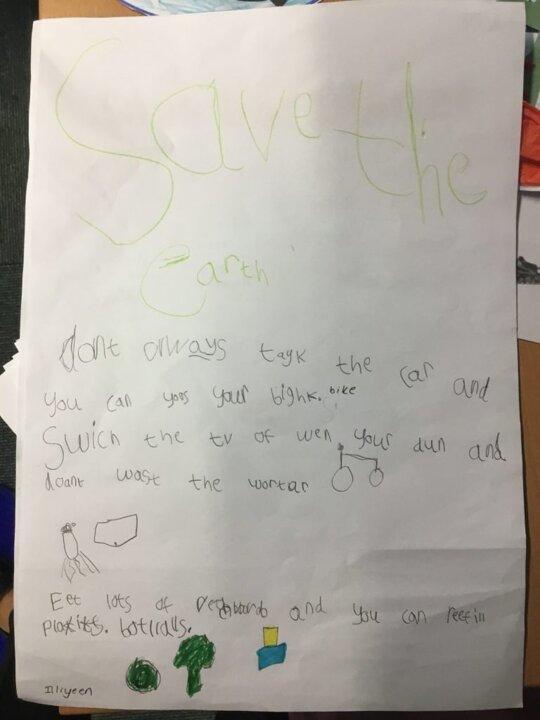 Save the
earth
dont always tayk the car and
you can yoos your bighk. bike
Swich the tv of wen your dun and
doant wast the wortar
Eet lots of and you can reefill
botlalls.